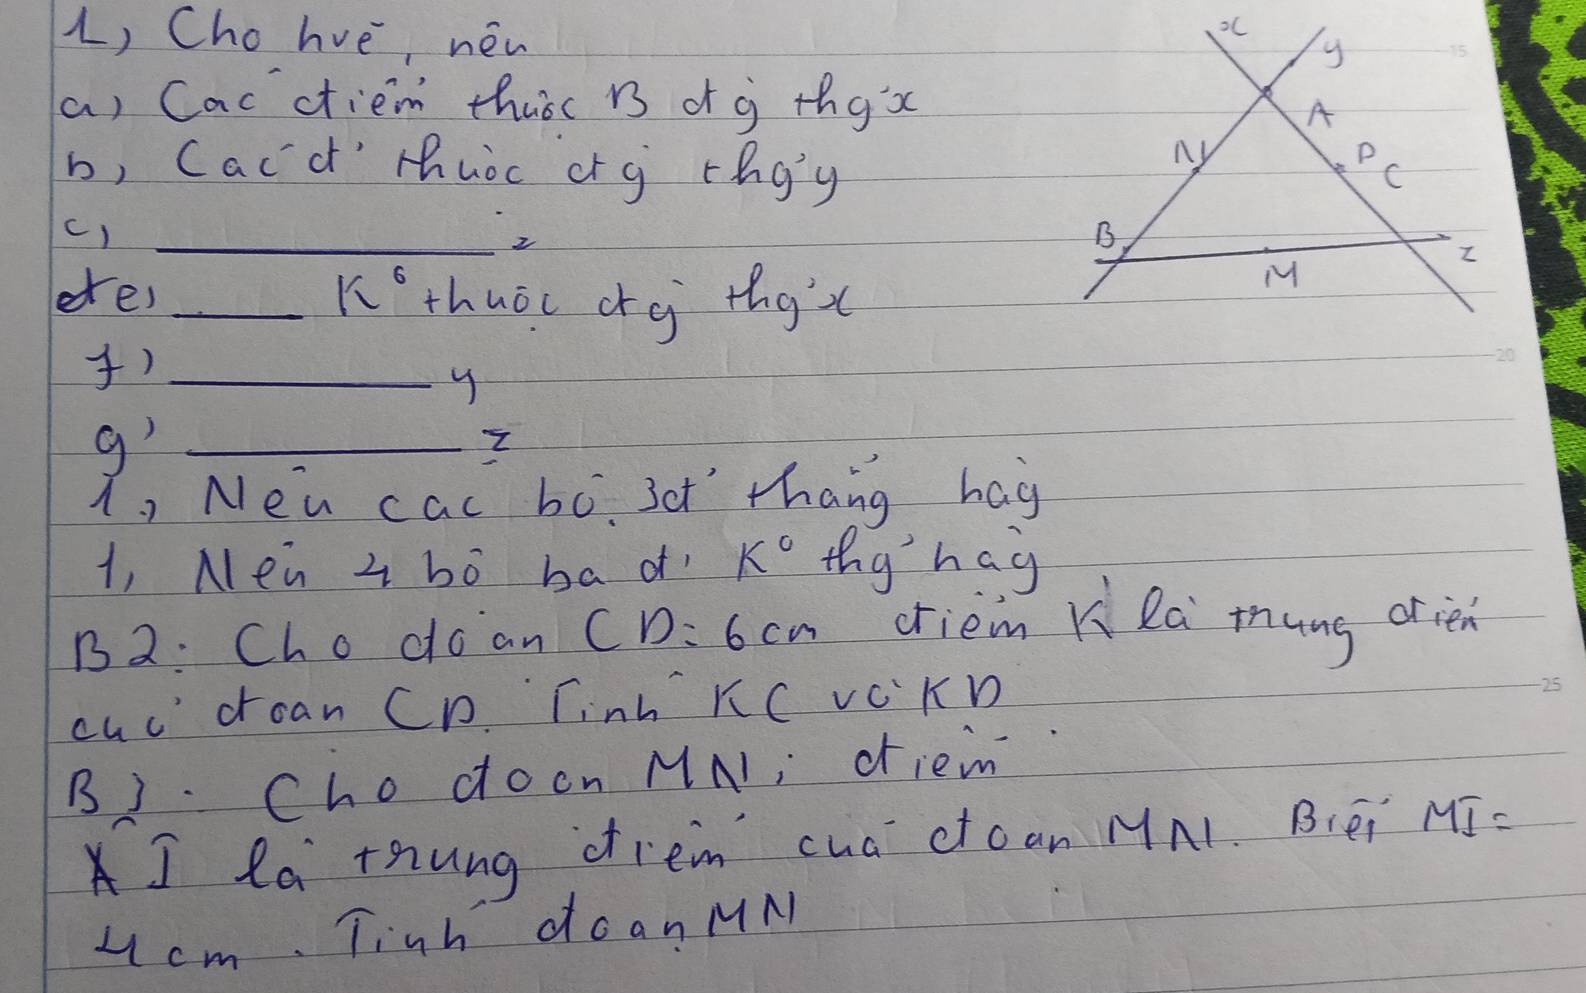 1, Cho hvẽ, nêu
a) Các điểm thuộc B đg thg x
b, Các đ' thuộc đg thg' y
c) ____ z
de, ____ K° thuộc đg thg' x
f) ____ y
g) ____ z
1, Nêu các bộ 3đ' thẳng hàg
1, Nêu 4 bộ ba đ' K° thg' hàg
B2: Cho đoạn CD = 6cm điểm K là trung điểm
của đoạn CD. Tính KC và KD
B3. Cho đoạn MN; điểm
I là trung điểm của đoạn MN. Biết MI =
4cm. Tính đoạn MN
x
y
A
N
P
C
B
z
M
15
20
25